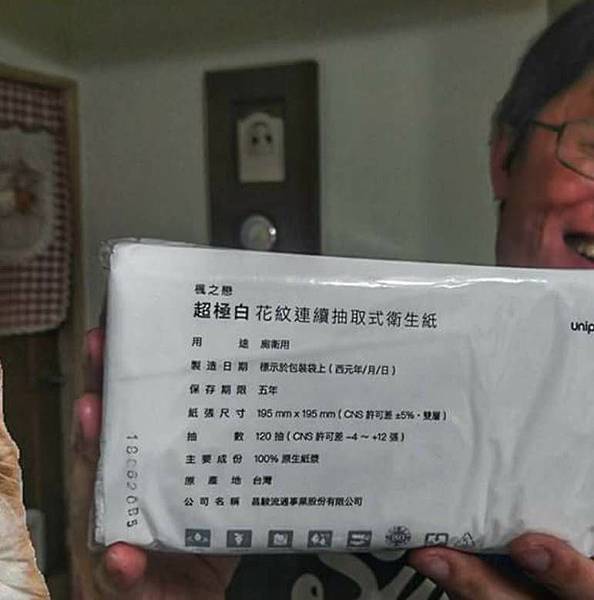 楓之戀
超極白 花紋連續抽取式衛生紙
unip
用 途 廁衛用
製造日期 標示於包裝袋上(西元年/月/日)
保存期限 五年
紙張尺寸 195 mm x 195 mm(CNS 許可差 ±5%,雙層)
抽 數 120 抽(CNS 許可差 -4 ~ +12 張)
主要成份 100% 原生紙漿
原產地 台灣
公司名稱 昌駿流通事業股份有限公司